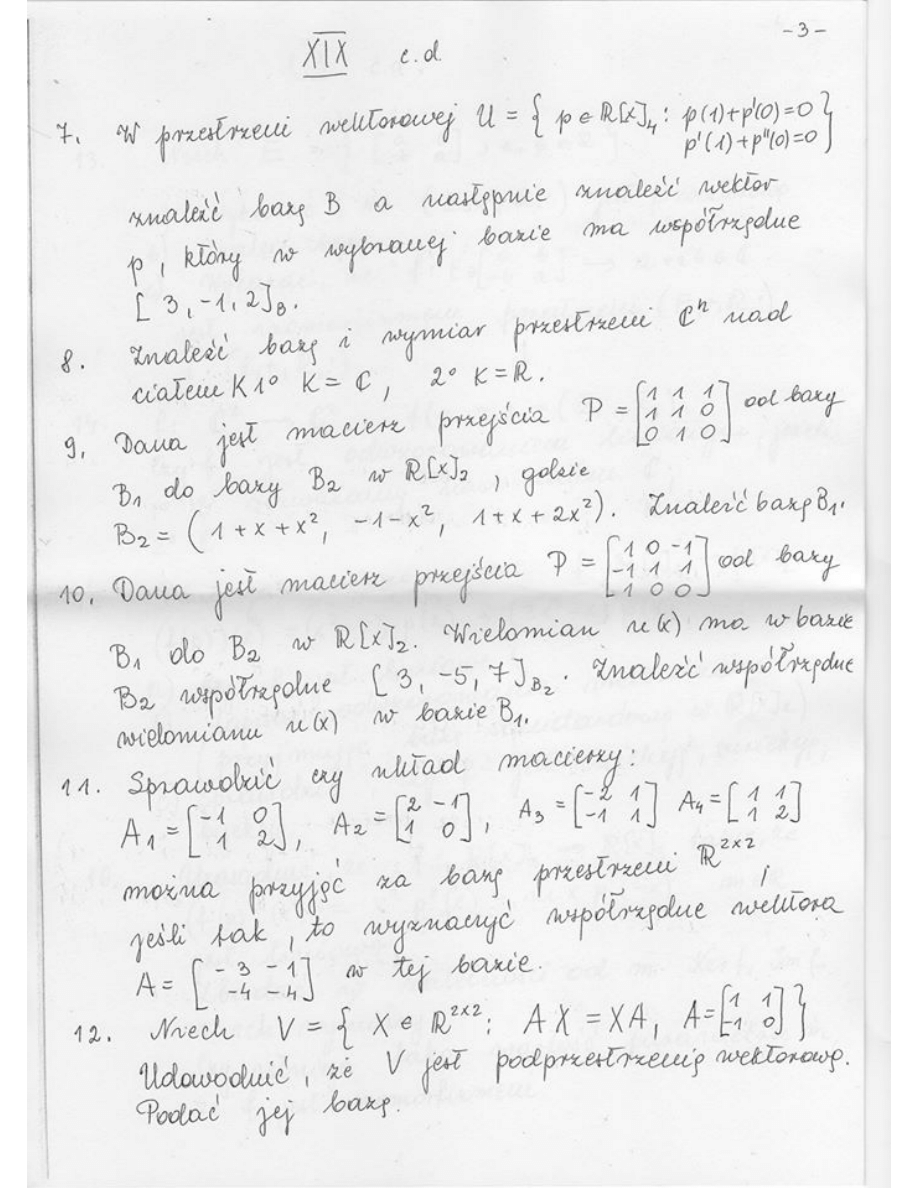 -3-
XIX c.d.
7. W przestrzeni wektorowej U = { p ∈ ℝ[x]₄ : p(1)+p'(0)=0
p'(1)+p''(0)=0 }
znaleźć bazę B a następnie znaleźć wektor
p, który w wybranej bazie ma współrzędne
[3,-1,2]_B.
8. Znaleźć bazę i wymiar przestrzeni ℂⁿ nad
ciałem K 1° K = ℂ, 2° K = ℝ.
9. Dana jest macierz przejścia P = [1 1 1; 1 1 0; 0 1 0] od bazy
B₁ do bazy B₂ w ℝ[x]₂, gdzie
B₂ = (1+x+x², -1-x², 1+x+2x²). Znaleźć bazę B₁.
10. Dana jest macierz przejścia P = [1 0 -1; -1 1 1; -1 0 0] od bazy
B₁ do B₂ w ℝ[x]₂. Wielomian u(x) ma w bazie
B₂ współrzędne [3,-5,7]_B₂. Znaleźć współrzędne
wielomianu u(x) w bazie B₁.
11. Sprawdzić czy układ macierzy:
A₁ = [-1 0; 1 2], A₂ = [2 -1; 1 0], A₃ = [-2 1; -1 1] A₄ = [1 1; 1 2]
można przyjąć za bazę przestrzeni ℝ²ˣ²,
jeśli tak, to wyznaczyć współrzędne wektora
A = [-3 -1; -4 -4] w tej bazie.
12. Niech V = { X ∈ ℝ²ˣ² : AX = XA, A = [1 1; -1 0] }
Udowodnić, że V jest podprzestrzenią wektorową.
Podać jej bazę.